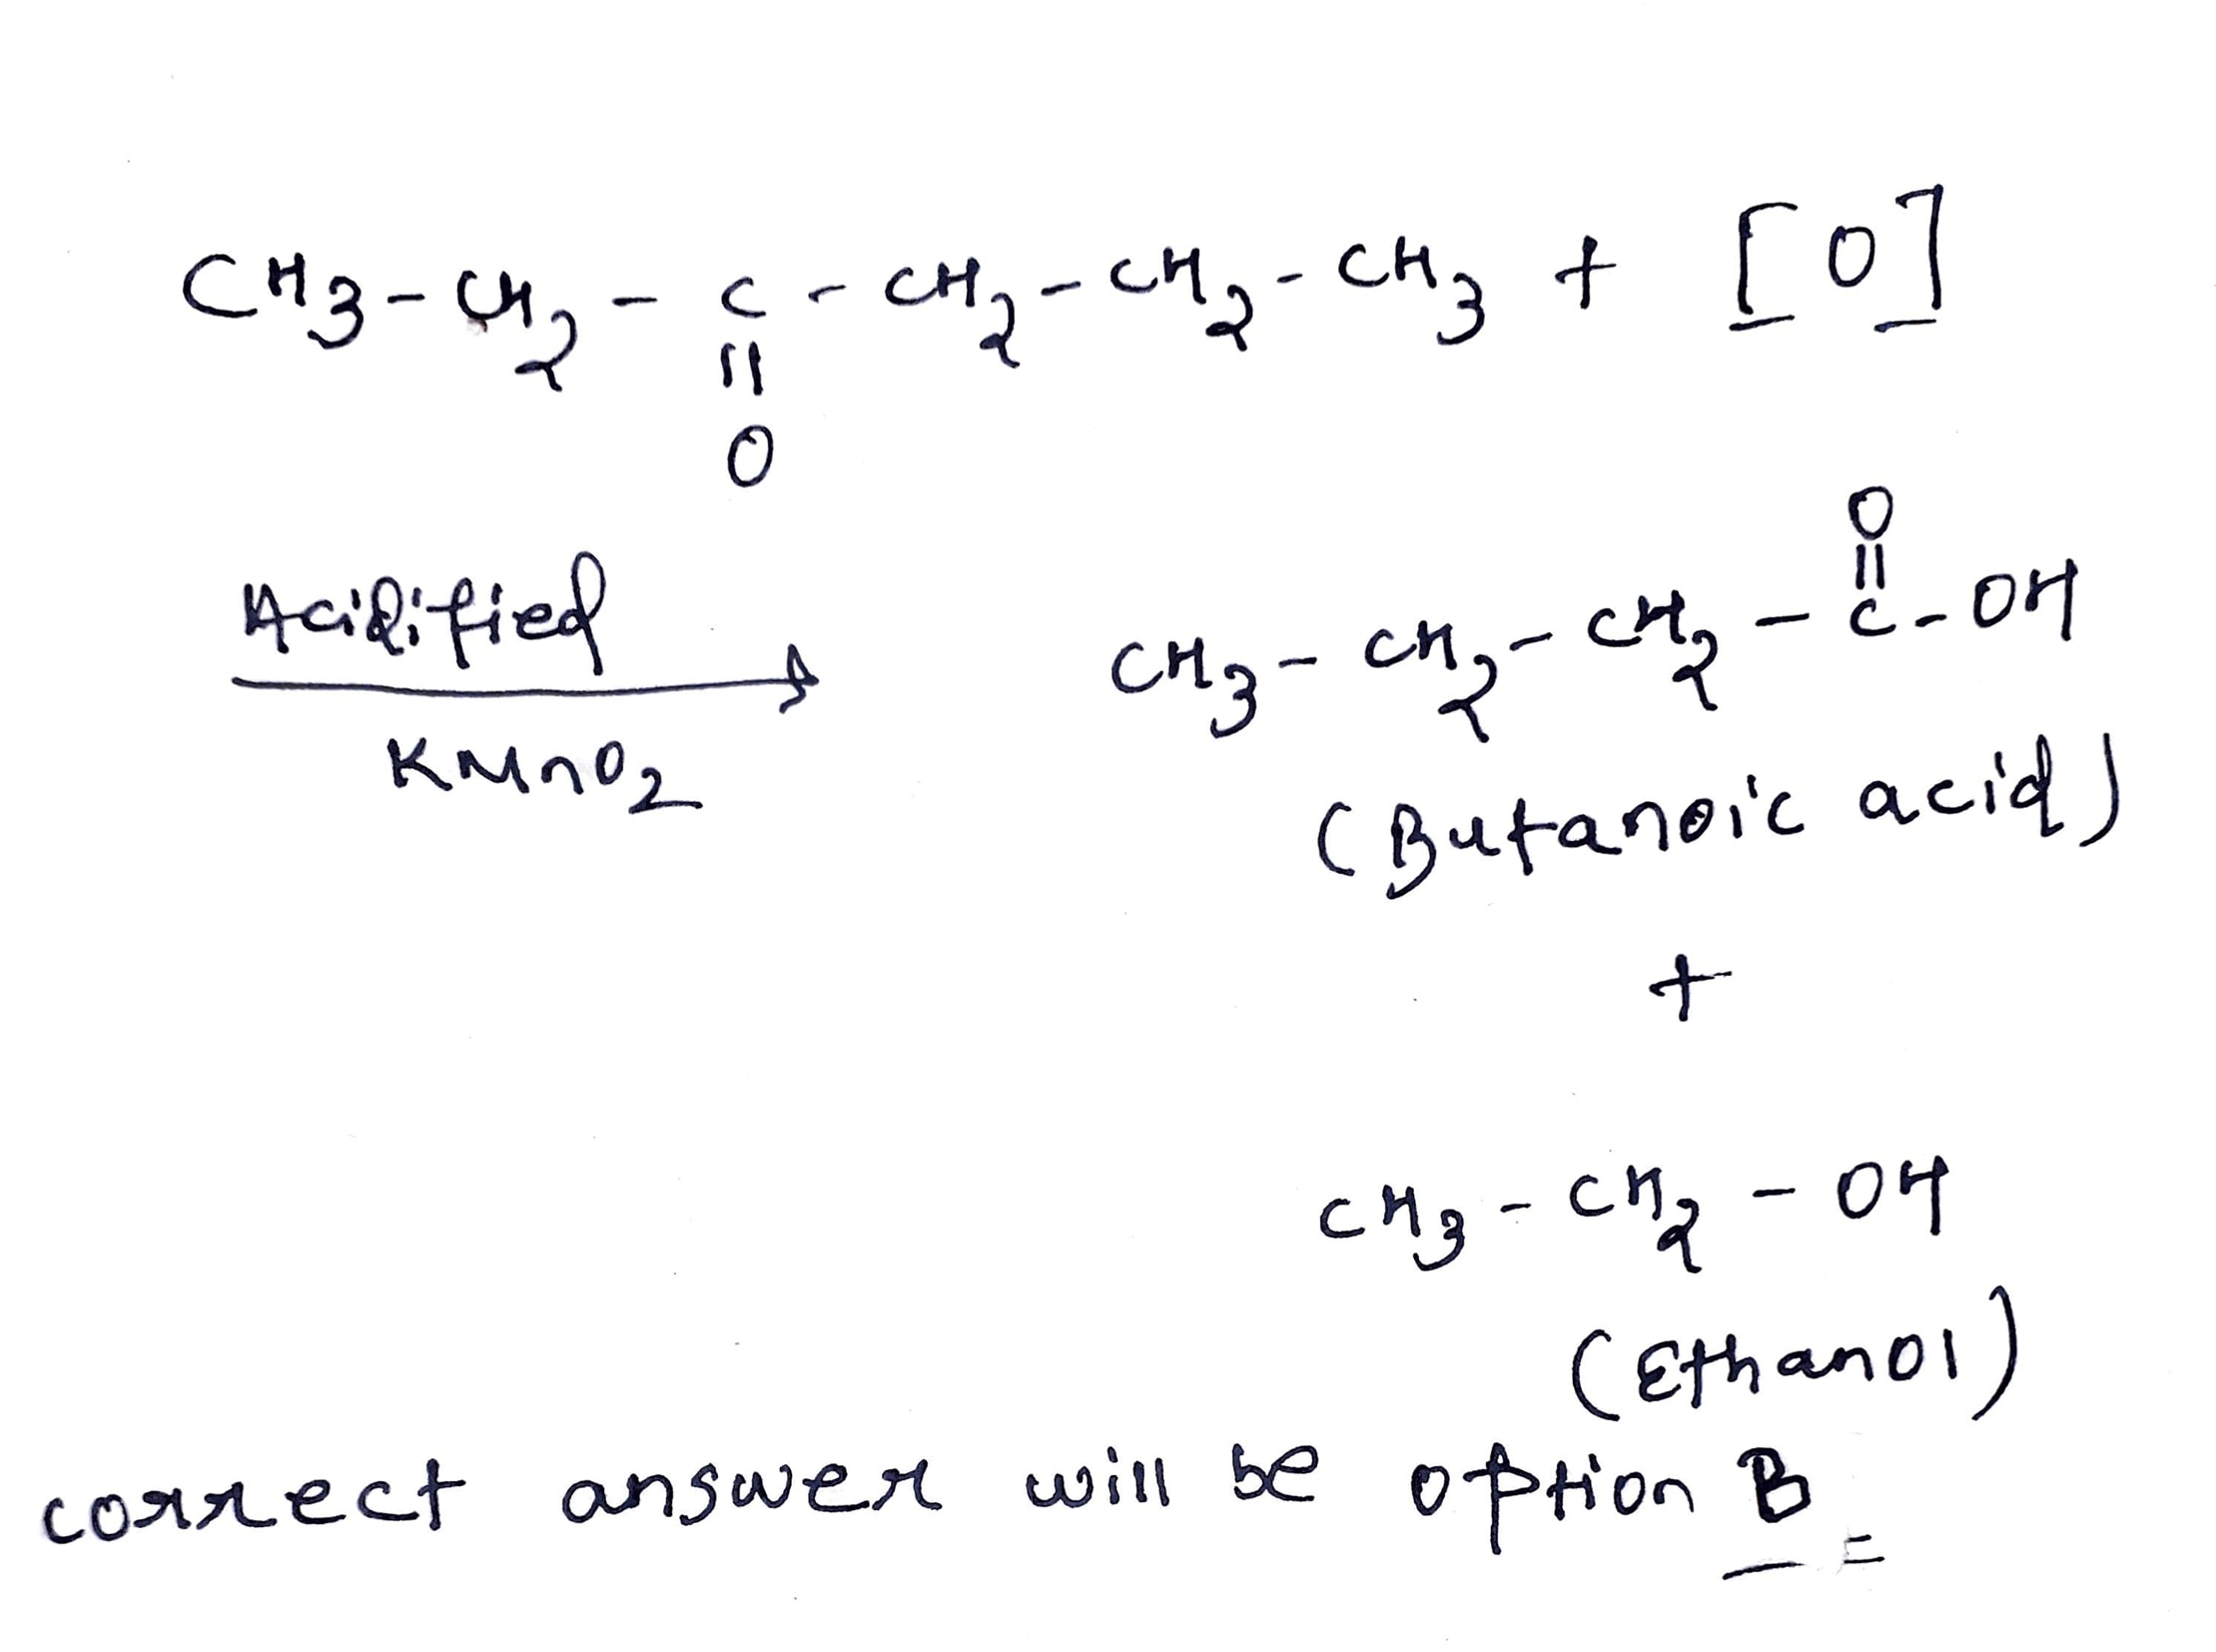 CH3-CH2-C-CH2-CH2-CH3 + [O]
||
O
O
||
Acidified
CH3-CH2-CH2-C-OH
KMnO2
(Butanoic acid)
+
CH3-CH2-OH
(Ethanol)
correct answer will be option B